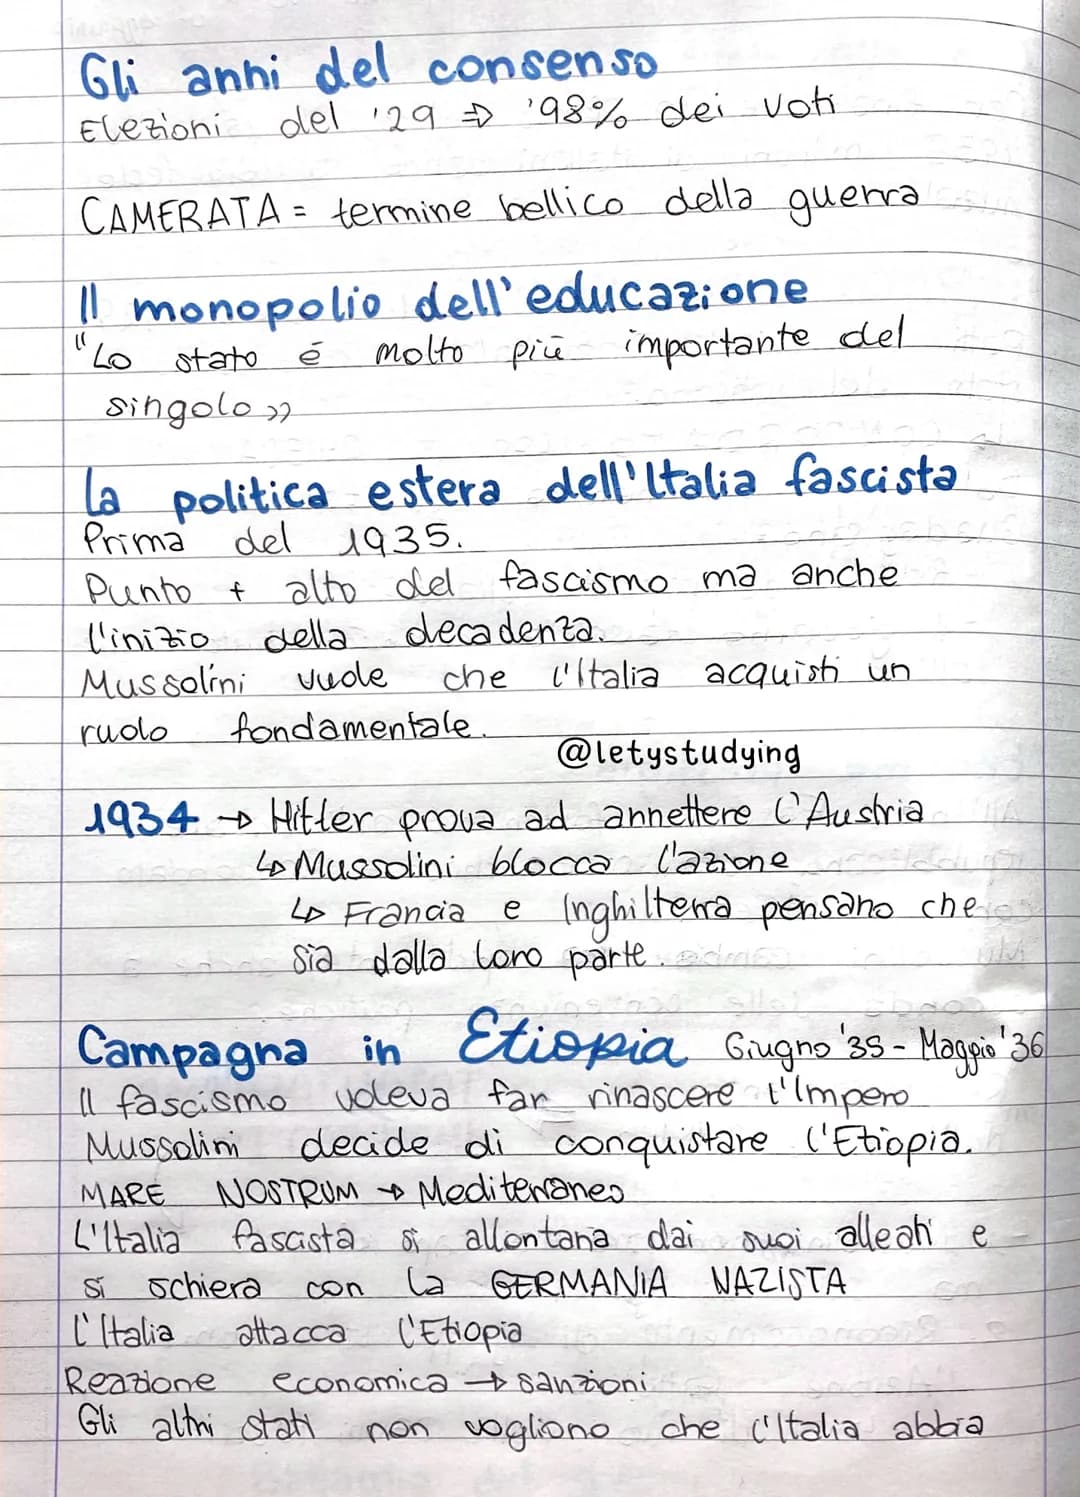 Gli anni del consenso
Elezioni del '29 ⇒ '98% dei voti
CAMERATA = termine bellico della guerra
Il monopolio dell'educazione
"Lo stato é molto più importante del
singolo»
la politica estera dell'Italia fascista
Prima del 1935.
Punto + alto del fascismo ma anche
l'inizio della decadenza.
Mussolini vuole che l'Italia acquisti un
ruolo fondamentale.
@letystudying
1934 → Hitler prova ad annettere l'Austria
↳ Mussolini blocca l'azione
↳ Francia e Inghilterra pensano che
sia dalla loro parte.
Campagna in Etiopia Giugno '35 - Maggio '36
Il fascismo voleva far rinascere l'Impero
Mussolini decide di conquistare l'Etiopia.
MARE NOSTRUM → Mediterraneo
L'Italia fascista si allontana dai suoi alleati e
si schiera con la GERMANIA NAZISTA
l'Italia attacca l'Etiopia
Reazione economica → sanzioni
Gli altri stati non vogliono che l'Italia abbia